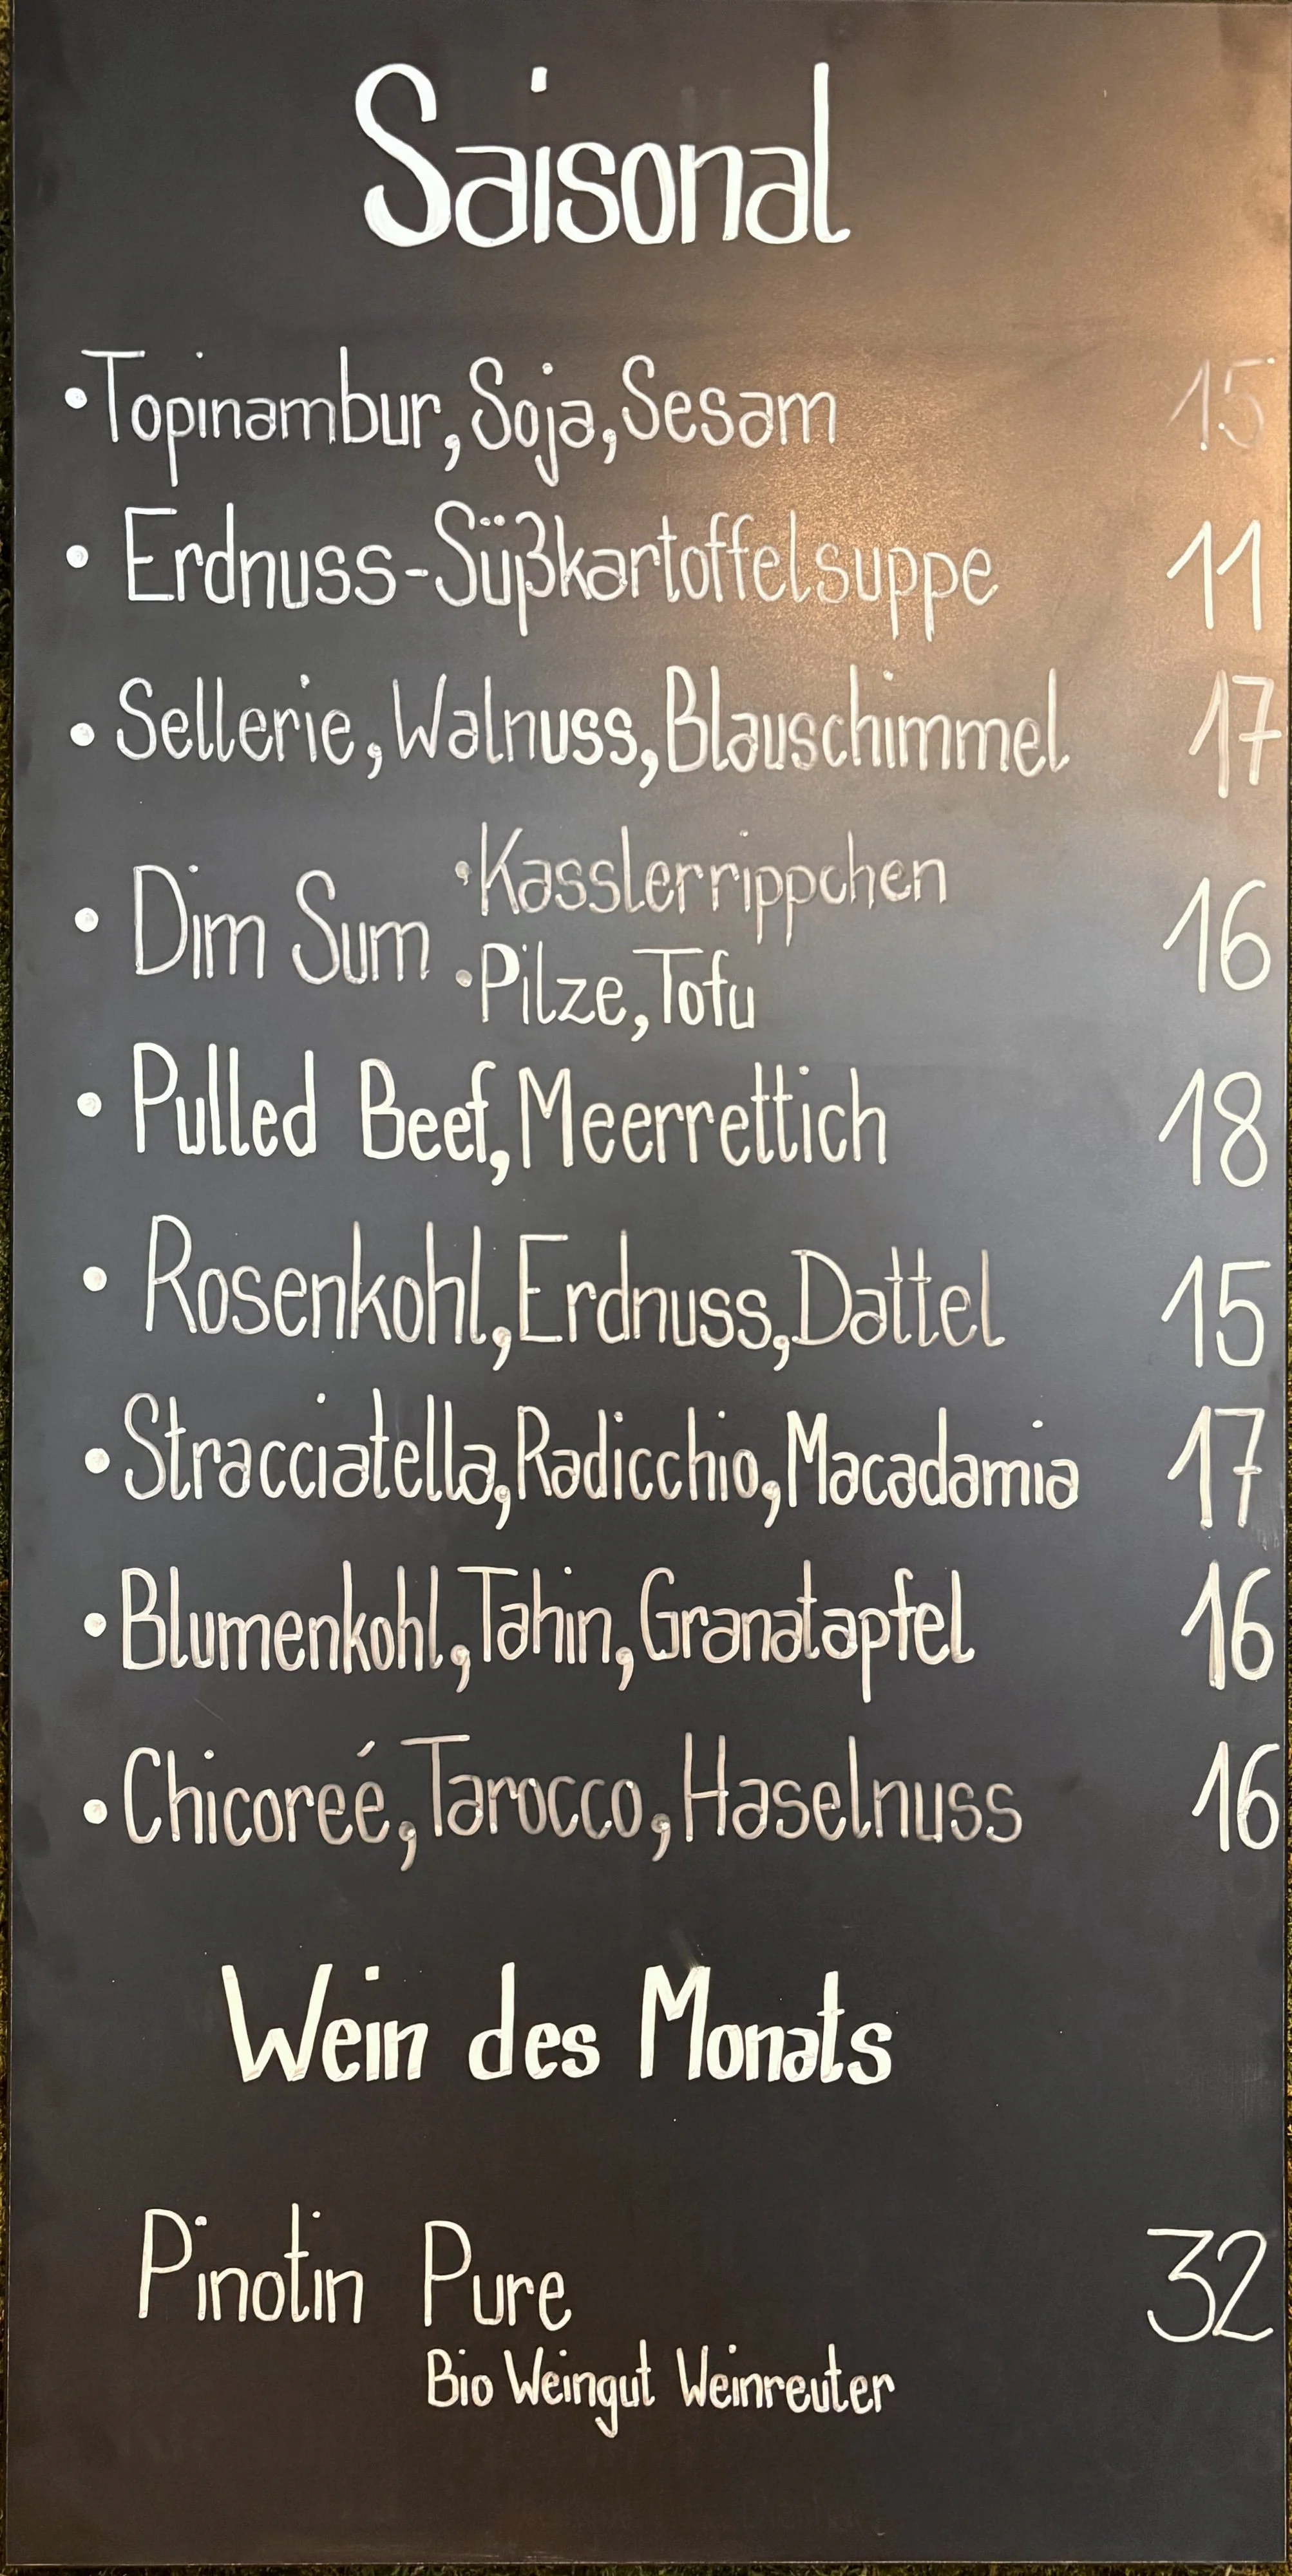 Saisonal
•Topinambur, Soja, Sesam 15
• Erdnuss-Süßkartoffelsuppe 11
• Sellerie, Walnuss, Blauschimmel 17
• Dim Sum •Kasslerrippchen 16
•Pilze, Tofu
• Pulled Beef, Meerrettich 18
• Rosenkohl, Erdnuss, Dattel 15
• Stracciatella, Radicchio, Macadamia 17
• Blumenkohl, Tahin, Granatapfel 16
• Chicoreé, Tarocco, Haselnuss 16
Wein des Monats
Pinotin Pure 32
Bio Weingut Weinreuter